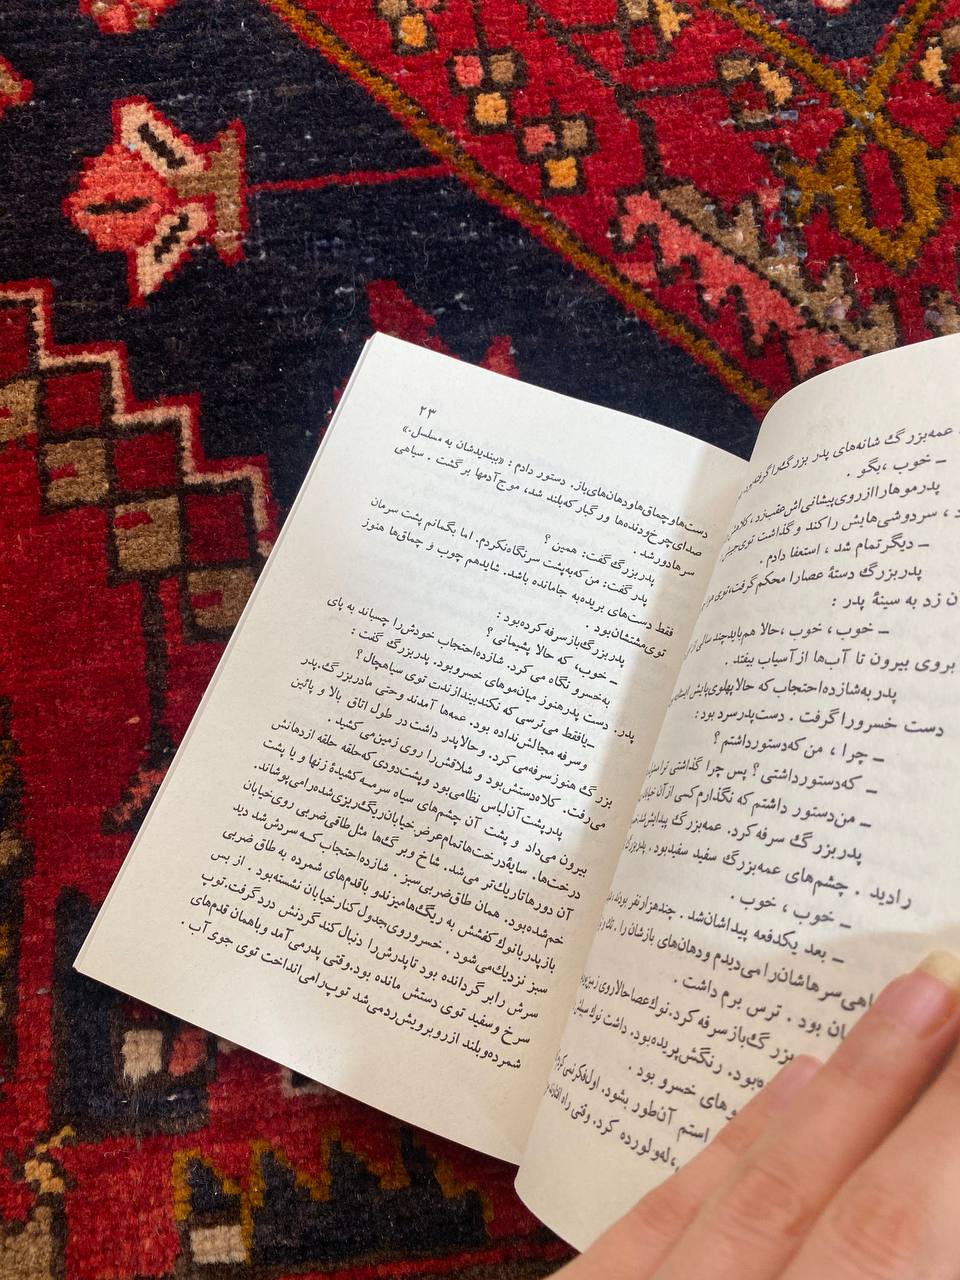 عمه‌بزرگ شانه‌های پدر بزرگ را گرفته بود.
– خوب ، بگو .
پدر موها را از روی پیشانی‌اش عقب زد ، کلاهش
، سردوشی‌هایش را کند و گذاشت توی جیبش
– دیگر تمام شد ، استعفا دادم .
پدربزرگ دستهٔ عصا را محکم گرفت، توی هوا
زد به سینهٔ پدر :
– خوب ، خوب ، حالا هم باید چند سالی از
بروی بیرون تا آب‌ها از آسیاب بیفتد .
پدر به شازده احتجاب که حالا پهلوی پایش ایستاده
دست خسرو را گرفت . دست پدر سرد بود :
– چرا ، من که دستور داشتم ؟
– که دستور داشتی ؟ پس چرا گذاشتی ترا
– من دستور داشتم که نگذارم کسی از آن خیابان
پدر بزرگ سرفه کرد. عمه‌بزرگ پیدایش شد،
را دید . چشم‌های عمه‌بزرگ سفید سفید بود . پدربزرگ
– خوب ، خوب .
– بعد یکدفعه پیداشان شد . چند هزار نفر بودند،
سیاهی سرهاشان را می‌دیدم و دهان‌های بازشان را .
بود . ترس برم داشت .
بزرگ باز سرفه کرد. نوک عصا حالا روی زمین
بود. رنگش پریده بود. داشت نوک
موهای خسرو بود .
آن‌طور بشود. اول فکر نمی
له‌ولورده کرد. وقتی راه
۲۳
دست‌ها و چماق‌ها و دهان‌های باز. دستور دادم : «ببندیدشان به مسلسل.»
صدای چرخ دنده‌ها و رگبار که بلند شد، موج آدمها برگشت . سیاهی
سرها دور شد .
پدر بزرگ گفت: همین ؟
پدر گفت: من که به پشت سر نگاه نکردم. اما بگمانم پشت سرمان
فقط دست‌های بریده به جا مانده باشد. شاید هم چوب و چماق‌ها هنوز
توی مشتشان بود .
پدر بزرگ باز سرفه کرده بود :
– خوب، که حالا پشیمانی ؟
به خسرو نگاه می کرد. شازده احتجاب خودش را چسباند به پای
پدر. دست پدر هنوز میان موهای خسرو بود. پدر بزرگ گفت :
– یا فقط می‌ترسی که نکند بیندازندت توی سیاهچال ؟
و سرفه مجالش نداده بود. عمه‌ها آمدند و حتی مادربزرگ. پدر
بزرگ هنوز سرفه می کرد. و حالا پدر داشت در طول اتاق بالا و پائین
می‌رفت. کلاه دستش بود و شلاقش را روی زمین می کشید .
پدر پشت آن لباس نظامی بود و پشت دودی که حلقه حلقه از دهانش
بیرون می‌داد و پشت آن چشم‌های سیاه سرمه کشیدهٔ زنها و یا پشت
درخت‌ها. سایهٔ درخت‌ها تمام عرض خیابان ریگ ریزی شده را می پوشاند.
آن دورها تاریک تر می‌شد. شاخ و برگ‌ها مثل طاقی ضربی روی خیابان
خم شده بود. همان طاق ضربی سبز . شازده احتجاب که سردش شد دید
باز پدر با نوک کفشش به ریگ‌ها میزند و با قدم‌های شمرده به طاق ضربی
سبز نزدیک می شود . خسرو روی جدول کنار خیابان نشسته بود . از بس
سرش را بر گردانده بود تا پدرش را دنبال کند گردنش درد گرفت. توپ
سرخ و سفید توی دستش مانده بود. وقتی پدر می آمد و با همان قدم‌های
شمرده و بلند از روبرویش رد می‌شد توپ را می انداخت توی جوی آب .